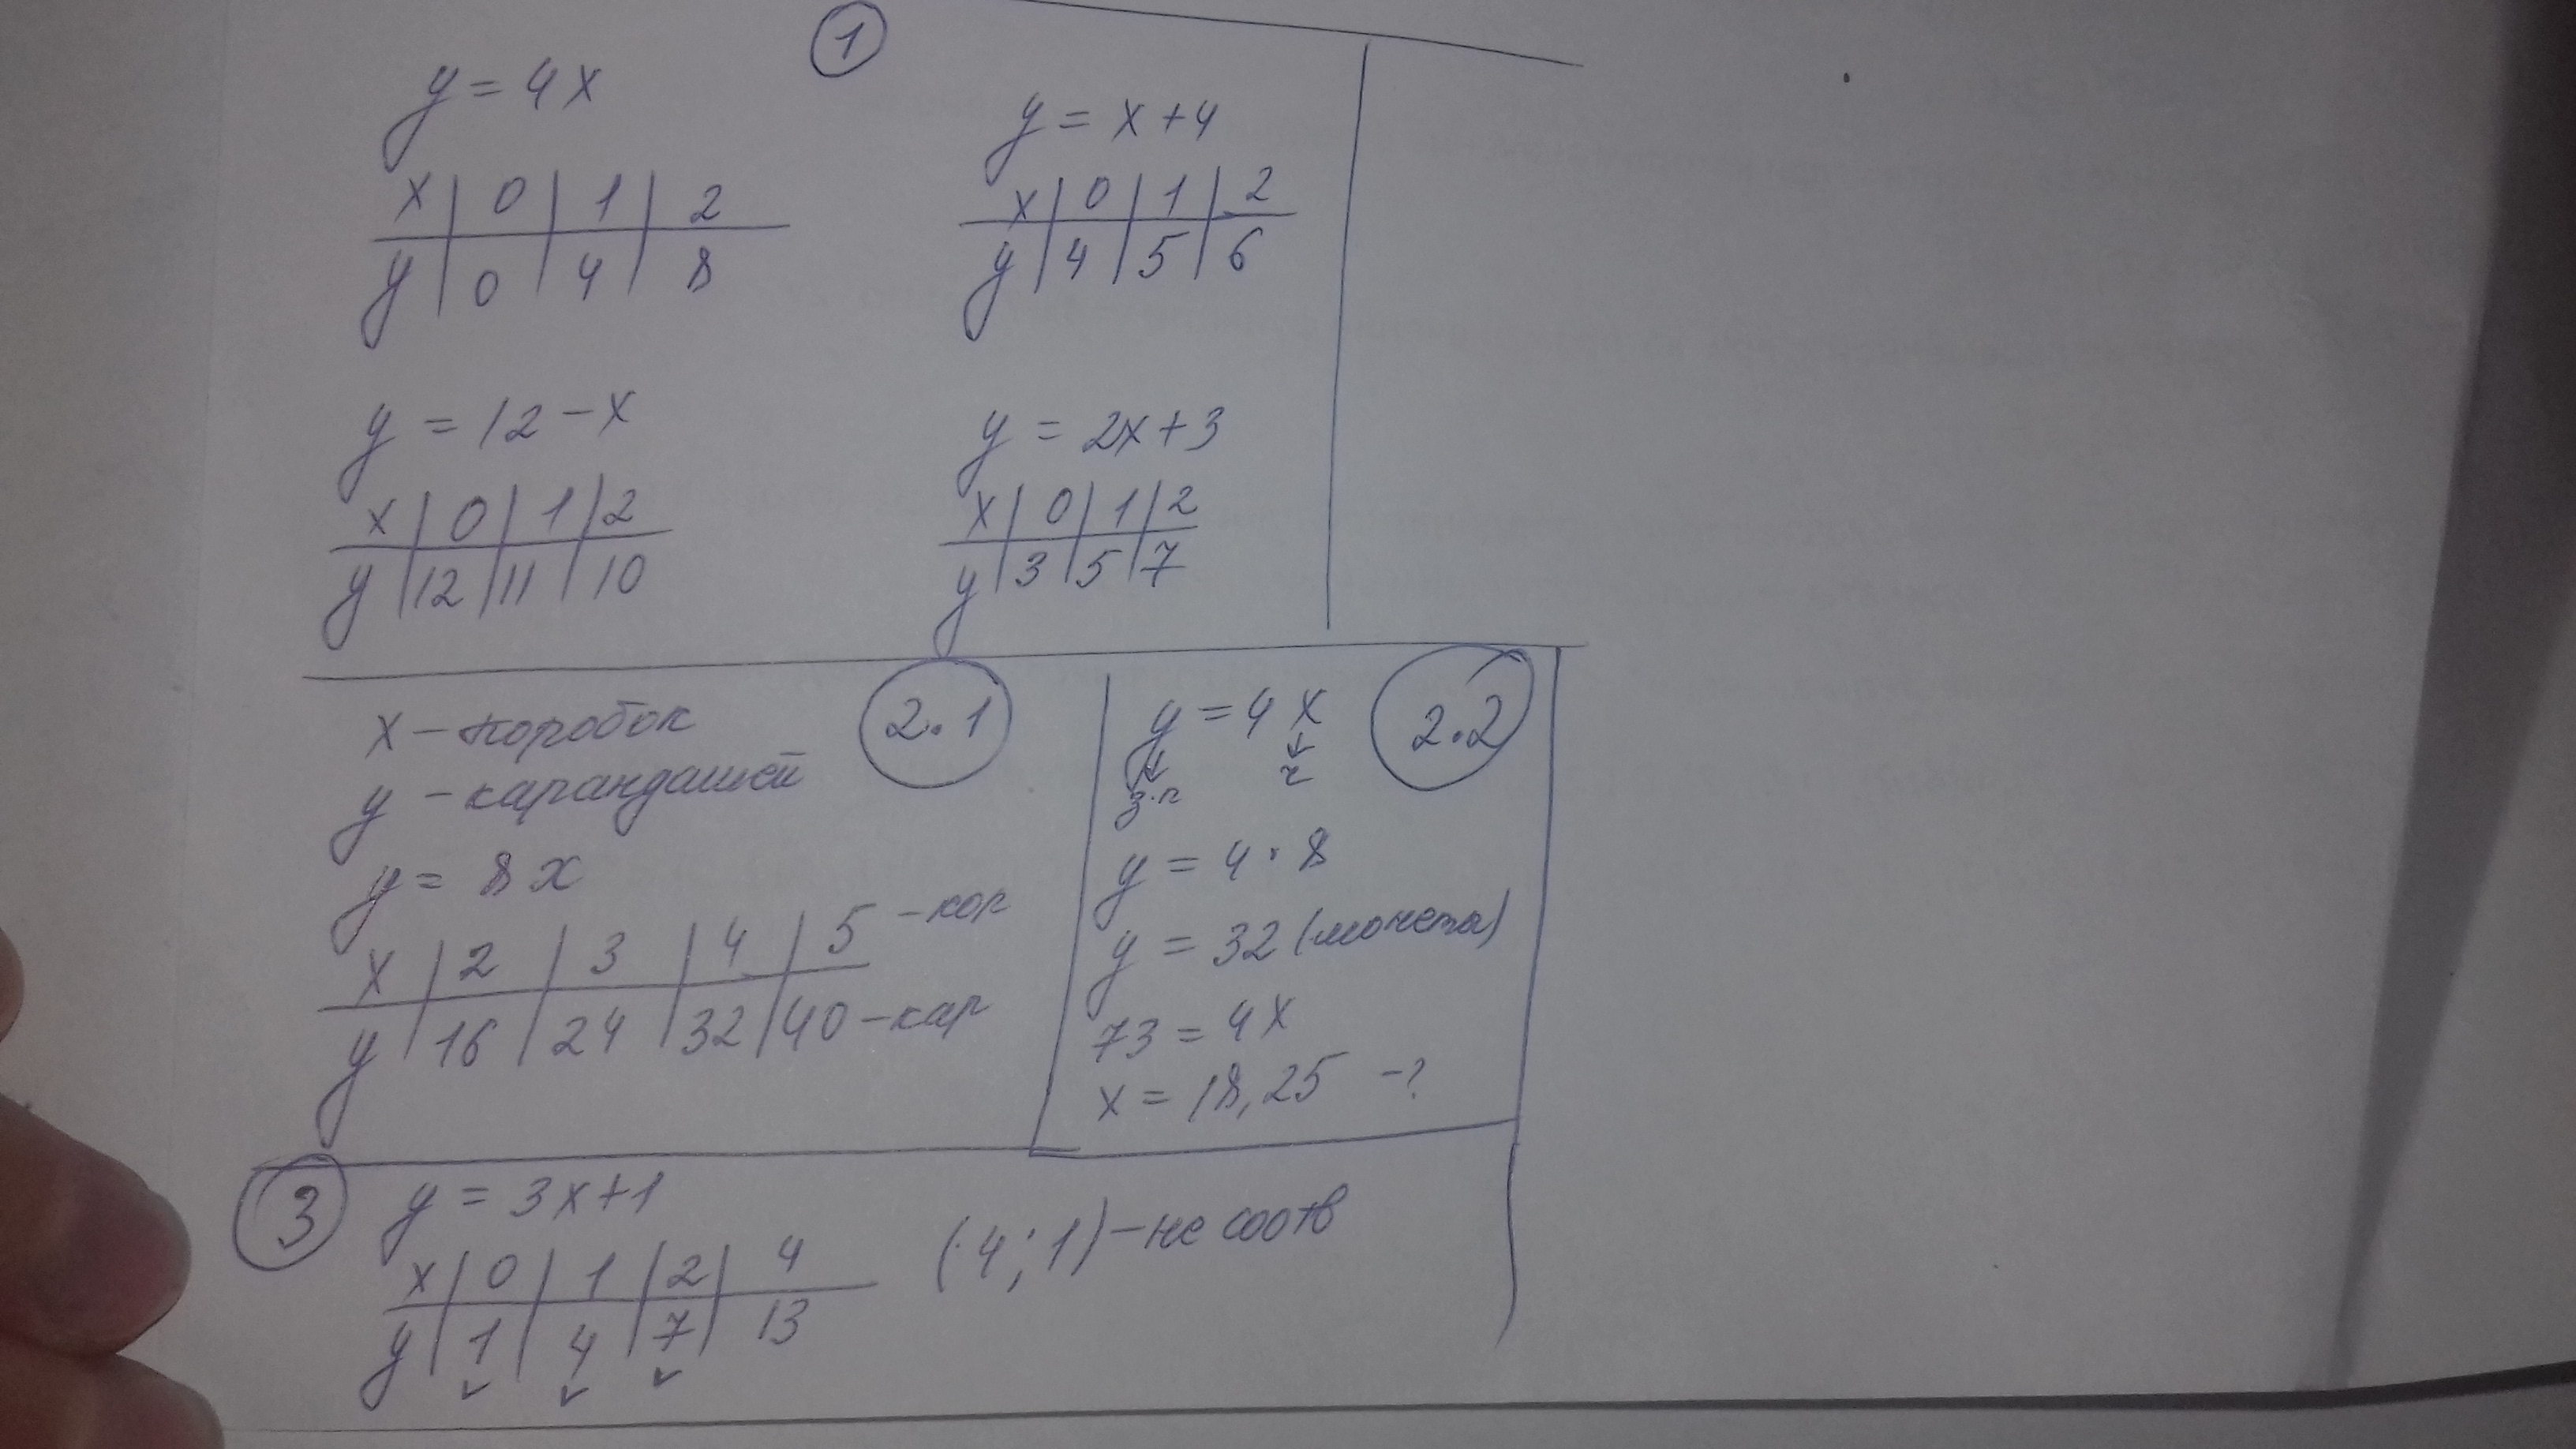 1
y = 4x
x | 0 | 1 | 2
y | 0 | 4 | 8
y = x + 4
x | 0 | 1 | 2
y | 4 | 5 | 6
y = 12 - x
x | 0 | 1 | 2
y | 12 | 11 | 10
y = 2x + 3
x | 0 | 1 | 2
y | 3 | 5 | 7
2.1
x - коробок
y - карандашей
y = 8x
x | 2 | 3 | 4 | 5 - кор
y | 16 | 24 | 32 | 40 - кар
2.2
y = 4x
↓ ↓
з.п ч
y = 4 · 8
y = 32 (монета)
73 = 4x
x = 18,25 - ?
3
y = 3x + 1
x | 0 | 1 | 2 | 4
y | 1 | 4 | 7 | 13
✓ ✓ ✓
(4; 1) - не соотв